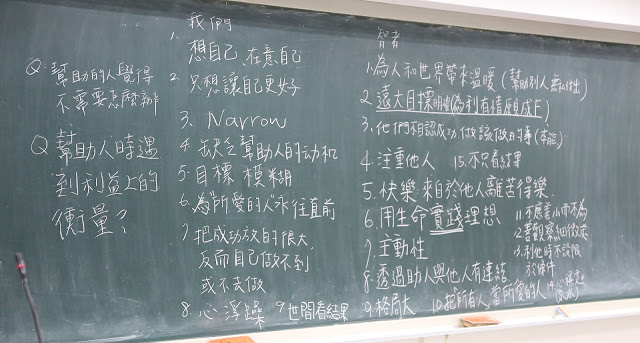 Q: 幫助的人覺得
不需要怎麼辦
Q 幫助人時遇
到利益上的
衡量?
我們
1. 想自己,在意自己
2. 只想讓自己更好
3. Narrow
4. 缺乏幫助人的动机
5. 目標模糊
6. 為"所愛的人"永往直前
7. 把成功放的很大,
反而自己做不到
或不去做
8. 心浮躁 9. 世間看結果
智者
1. 為人和世界帶來溫暖(幫助別人無私付出)
2. 遠大目標明確(為利有情願成佛)
3. 他們相認成功,做該做的事(本能)
4. 注重他人 15. 不只看結果
5. 快樂來自於他人離苦得樂
6. 用生命實踐理想
7. 主動性
8. 透過助人與他人有連結
9. 格局大 10. 把所有人當所愛的人
11. 不應善小而不為
12. 善觀察細微處
13. 利他時不設限
於條件
14.